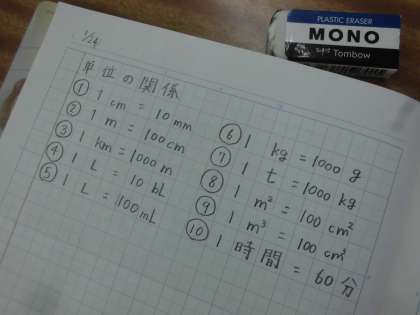 PLASTIC ERASER
MONO
Tombow
1/24
単位の関係
① 1 cm = 10 mm
② 1 m = 100 cm
③ 1 km = 1000 m
④ 1 L = 10 bL
⑤ 1 L = 100 mL
⑥ 1 kg = 1000 g
⑦ 1 t = 1000 kg
⑧ 1 m² = 100 cm²
⑨ 1 m³ = 100 cm³
⑩ 1 時間 = 60 分